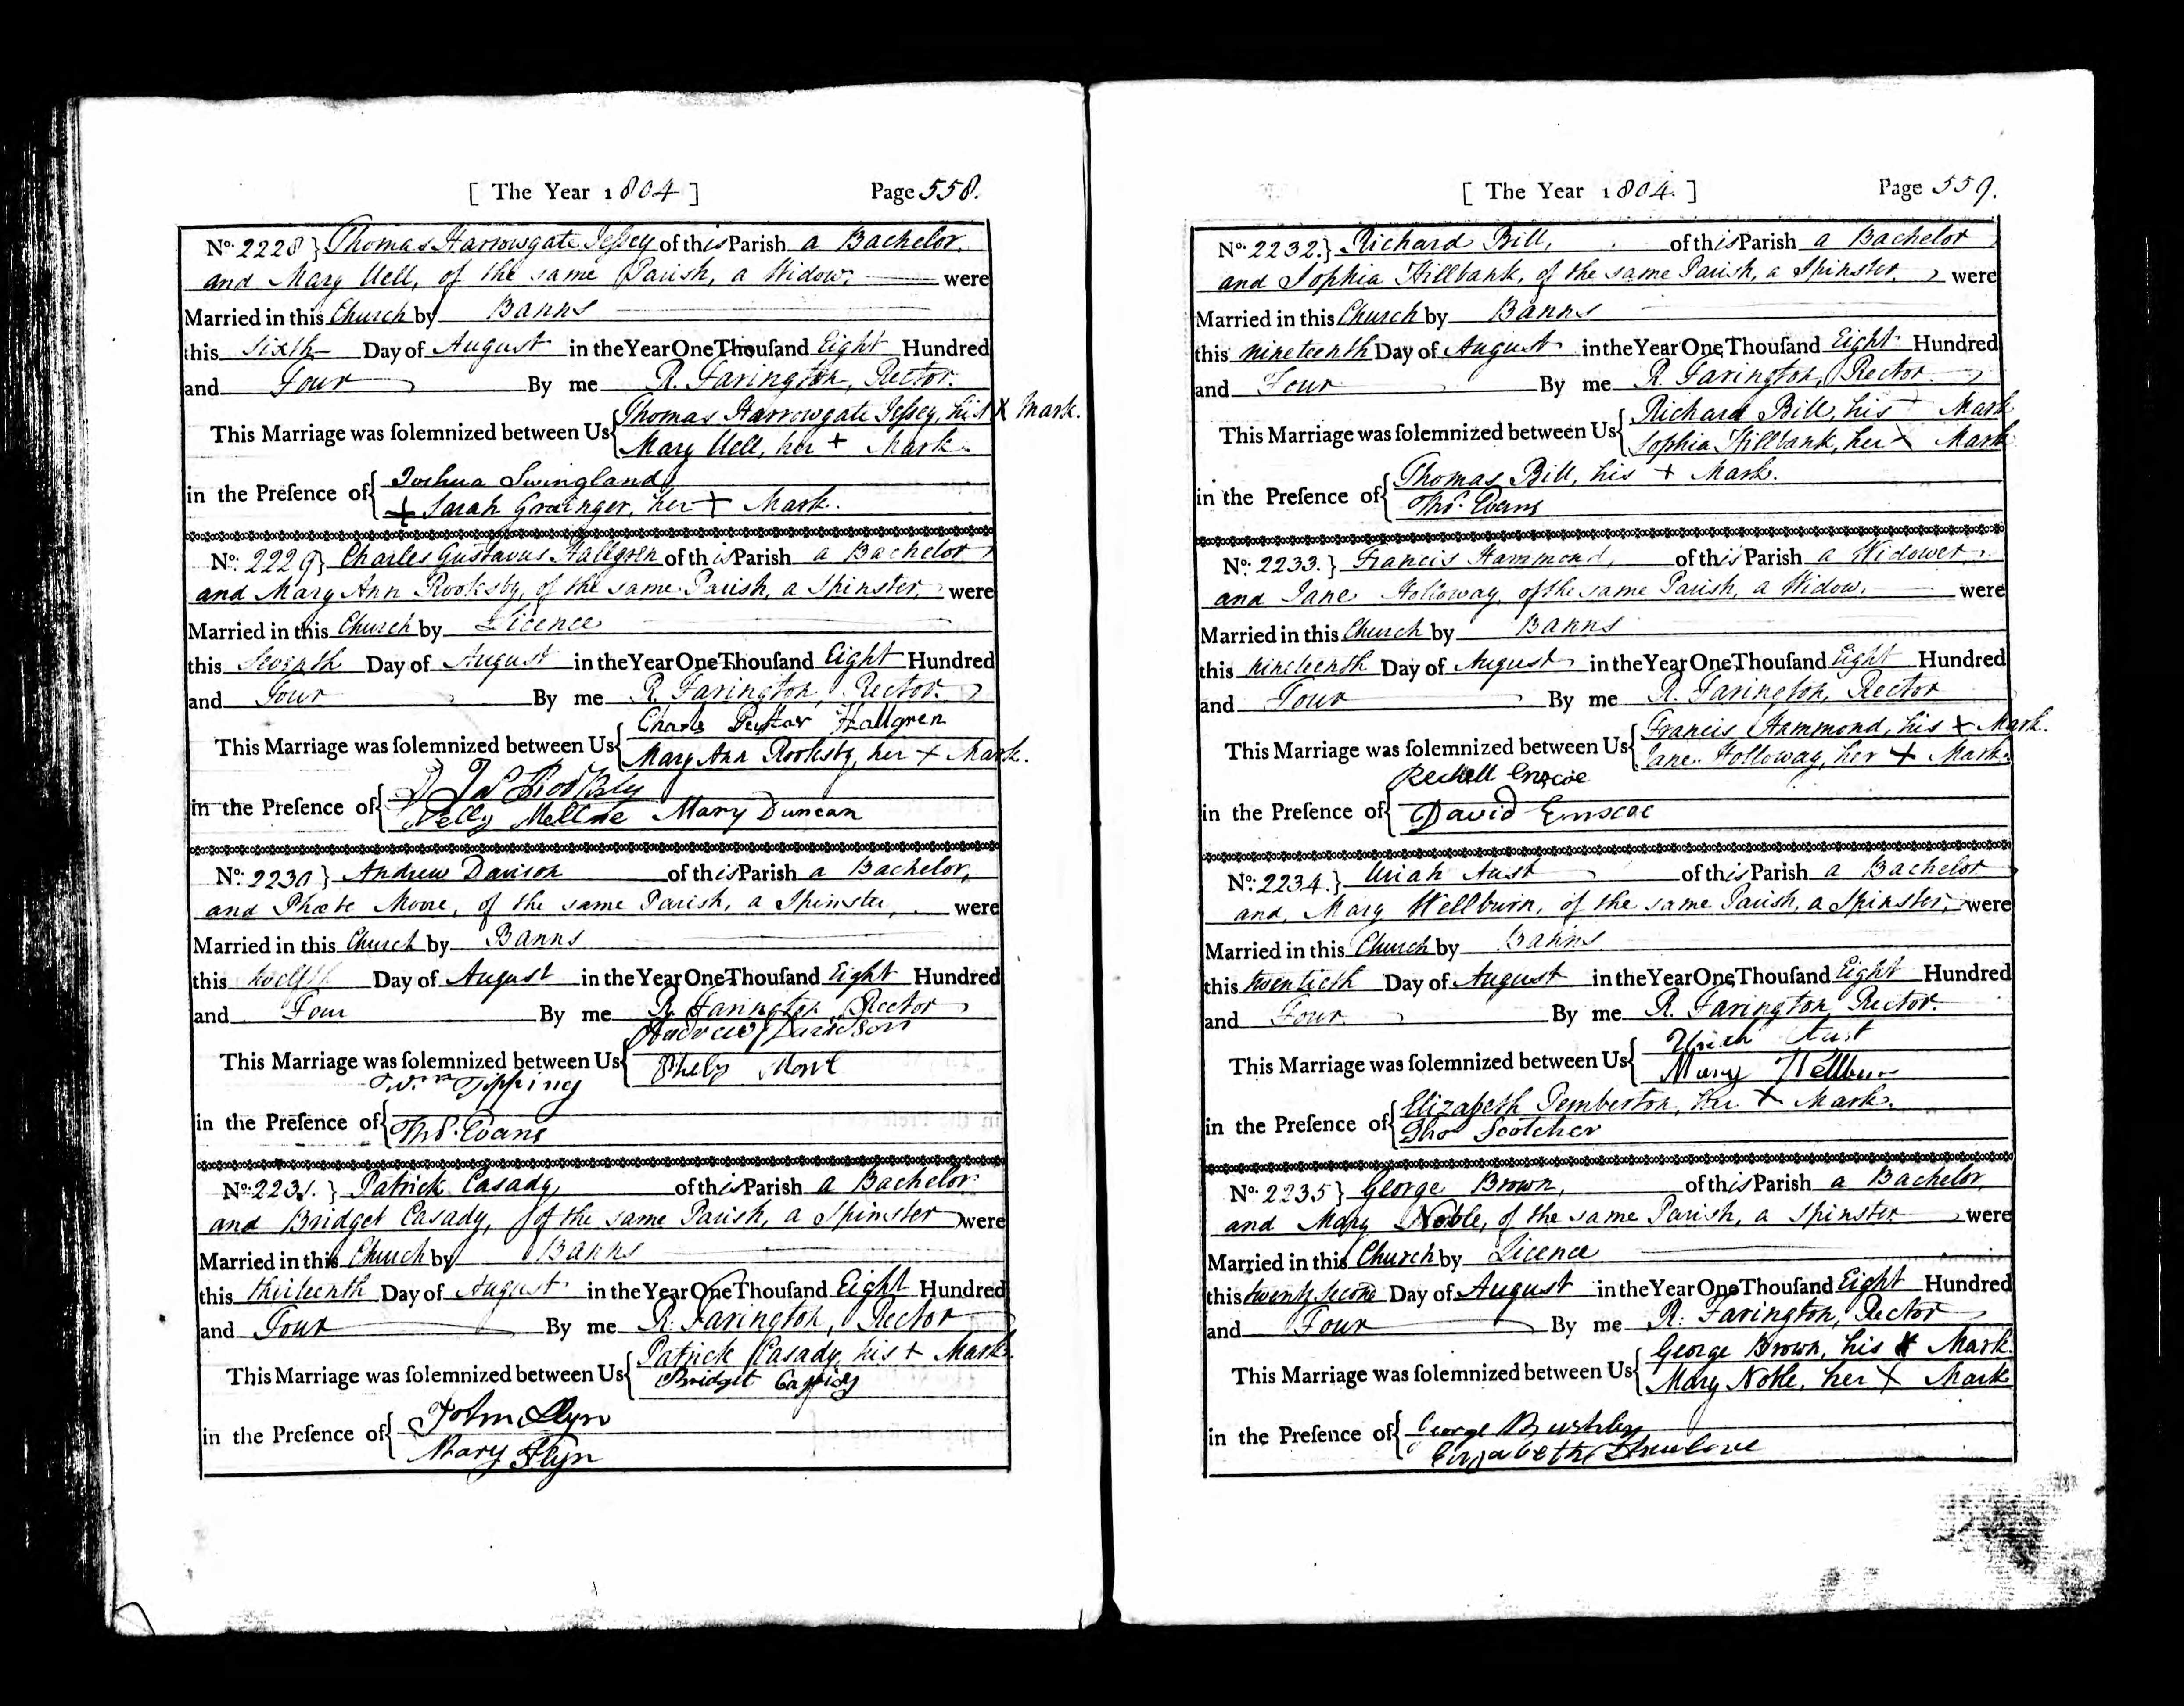 [ The Year 1804 ] Page 558.
No. 2228 } Thomas Harrowgate Jeſsey of this Parish a Bachelor,
and Mary Uell, of the same Parish, a Widow, were
Married in this Church by Banns
this sixth Day of August in the Year One Thouſand Eight Hundred
and Four By me R. Farington, Rector.
Thomas Harrowgate Jeſsey, his X Mark.
This Marriage was ſolemnized between Us {
Mary Uell, her + Mark
Joshua Swingland
in the Preſence of {
+ Sarah Grainger, her + Mark.
No. 2229 } Charles Gustavus Hallgren of this Parish a Bachelor
and Mary Ann Rooksby, of the same Parish, a Spinster, were
Married in this Church by Licence
this Seventh Day of August in the Year One Thouſand Eight Hundred
and Four By me R. Farington, Rector.
Charls Hallgren
This Marriage was ſolemnized between Us {
Mary Ann Rooksby, her + Mark.
Rooksby
in the Preſence of {
Nelly Mary Duncan
No. 2230 } Andrew Davison of this Parish a Bachelor,
and Phœbe Moore, of the same Parish, a Spinster, were
Married in this Church by Banns
this twelfth Day of August in the Year One Thouſand Eight Hundred
and Four By me R. Farington Rector
Andrew Davidson
This Marriage was ſolemnized between Us {
Pheby
Wm Tipping
in the Preſence of {
Thos. Evans
No. 2231. } Patrick Casady, of this Parish a Bachelor
and Bridget Casady, of the same Parish, a Spinster were
Married in this Church by Banns
this thirteenth Day of August in the Year One Thouſand Eight Hundred
and Four By me R. Farington, Rector
Patrick Casady, his + Mark.
This Marriage was ſolemnized between Us {
Bridget
John Flyn
in the Preſence of {
Mary Flyn
[ The Year 1804. ] Page 559.
No. 2232. } Richard Bill, of this Parish a Bachelor
and Sophia Hillbank, of the same Parish, a Spinster, were
Married in this Church by Banns
this nineteenth Day of August in the Year One Thouſand Eight Hundred
and Four By me R. Farington, Rector
Richard Bill, his + Mark
This Marriage was ſolemnized between Us {
Sophia Hillbank, her X Mark
Thomas Bill, his + Mark.
in the Preſence of {
Thos. Evans
No. 2233. } Francis Hammond, of this Parish a Widower
and Jane Holloway, of the same Parish, a Widow, were
Married in this Church by Banns
this nineteenth Day of August in the Year One Thouſand Eight Hundred
and Four By me R. Farington, Rector
Francis Hammond, his + Mark.
This Marriage was ſolemnized between Us {
Jane Holloway, her + Mark.
Enscoe
in the Preſence of {
David Emscoe
No. 2234. } Uriah Aust of this Parish a Bachelor
and, Mary Wellburn, of the same Parish, a Spinster, were
Married in this Church by Banns
this twentieth Day of August in the Year One Thouſand Eight Hundred
and Four By me R. Farington, Rector.
Uriah Aust
This Marriage was ſolemnized between Us {
Mary Wellburn
Elizabeth Pemberton, her + Mark.
in the Preſence of {
Tho Scotcher
No. 2235 } George Brown, of this Parish a Bachelor
and Mary Noble, of the same Parish, a Spinster were
Married in this Church by Licence
this twenty second Day of August in the Year One Thouſand Eight Hundred
and Four By me R. Farington, Rector
George Brown, his X Mark.
This Marriage was ſolemnized between Us {
Mary Noble, her X Mark
George Bushby
in the Preſence of {
Elizabeth